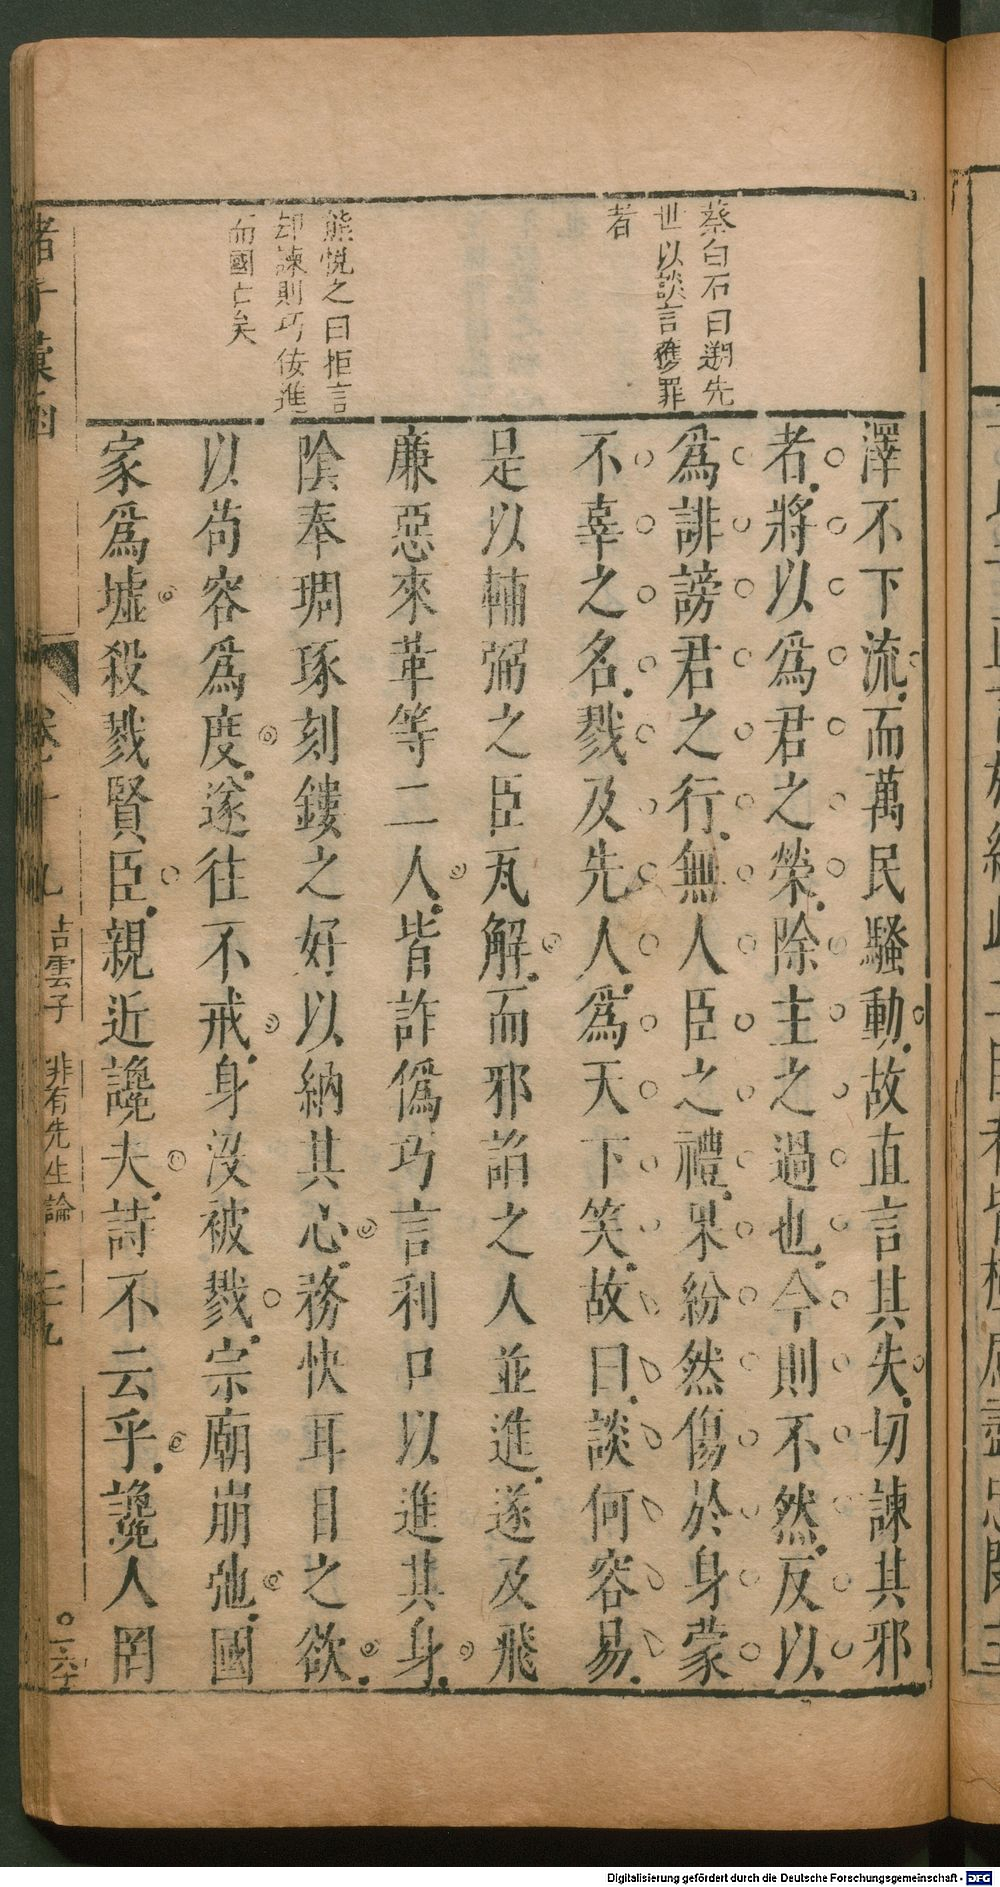 蔡白石曰遡先
世以談言獲罪
者
熊悅之曰拒言
却諫則巧佞進
而國亡矣
澤不下流而萬民騷動故直言其失切諫其邪
者將以爲君之榮除主之過也今則不然反以
爲誹謗君之行無人臣之禮果紛然傷於身蒙
不辜之名戮及先人爲天下笑故曰談何容易
是以輔弼之臣瓦解而邪諂之人並進遂及飛
廉惡來革等二人皆詐僞巧言利口以進其身
陰奉琱琢刻鏤之好以納其心務快耳目之欲
以苟容爲度遂往不戒身沒被戮宗廟崩弛國
家爲墟殺戮賢臣親近讒夫詩不云乎讒人罔
諸子彙函
卷十九
吉雲子
非有先生論
二九